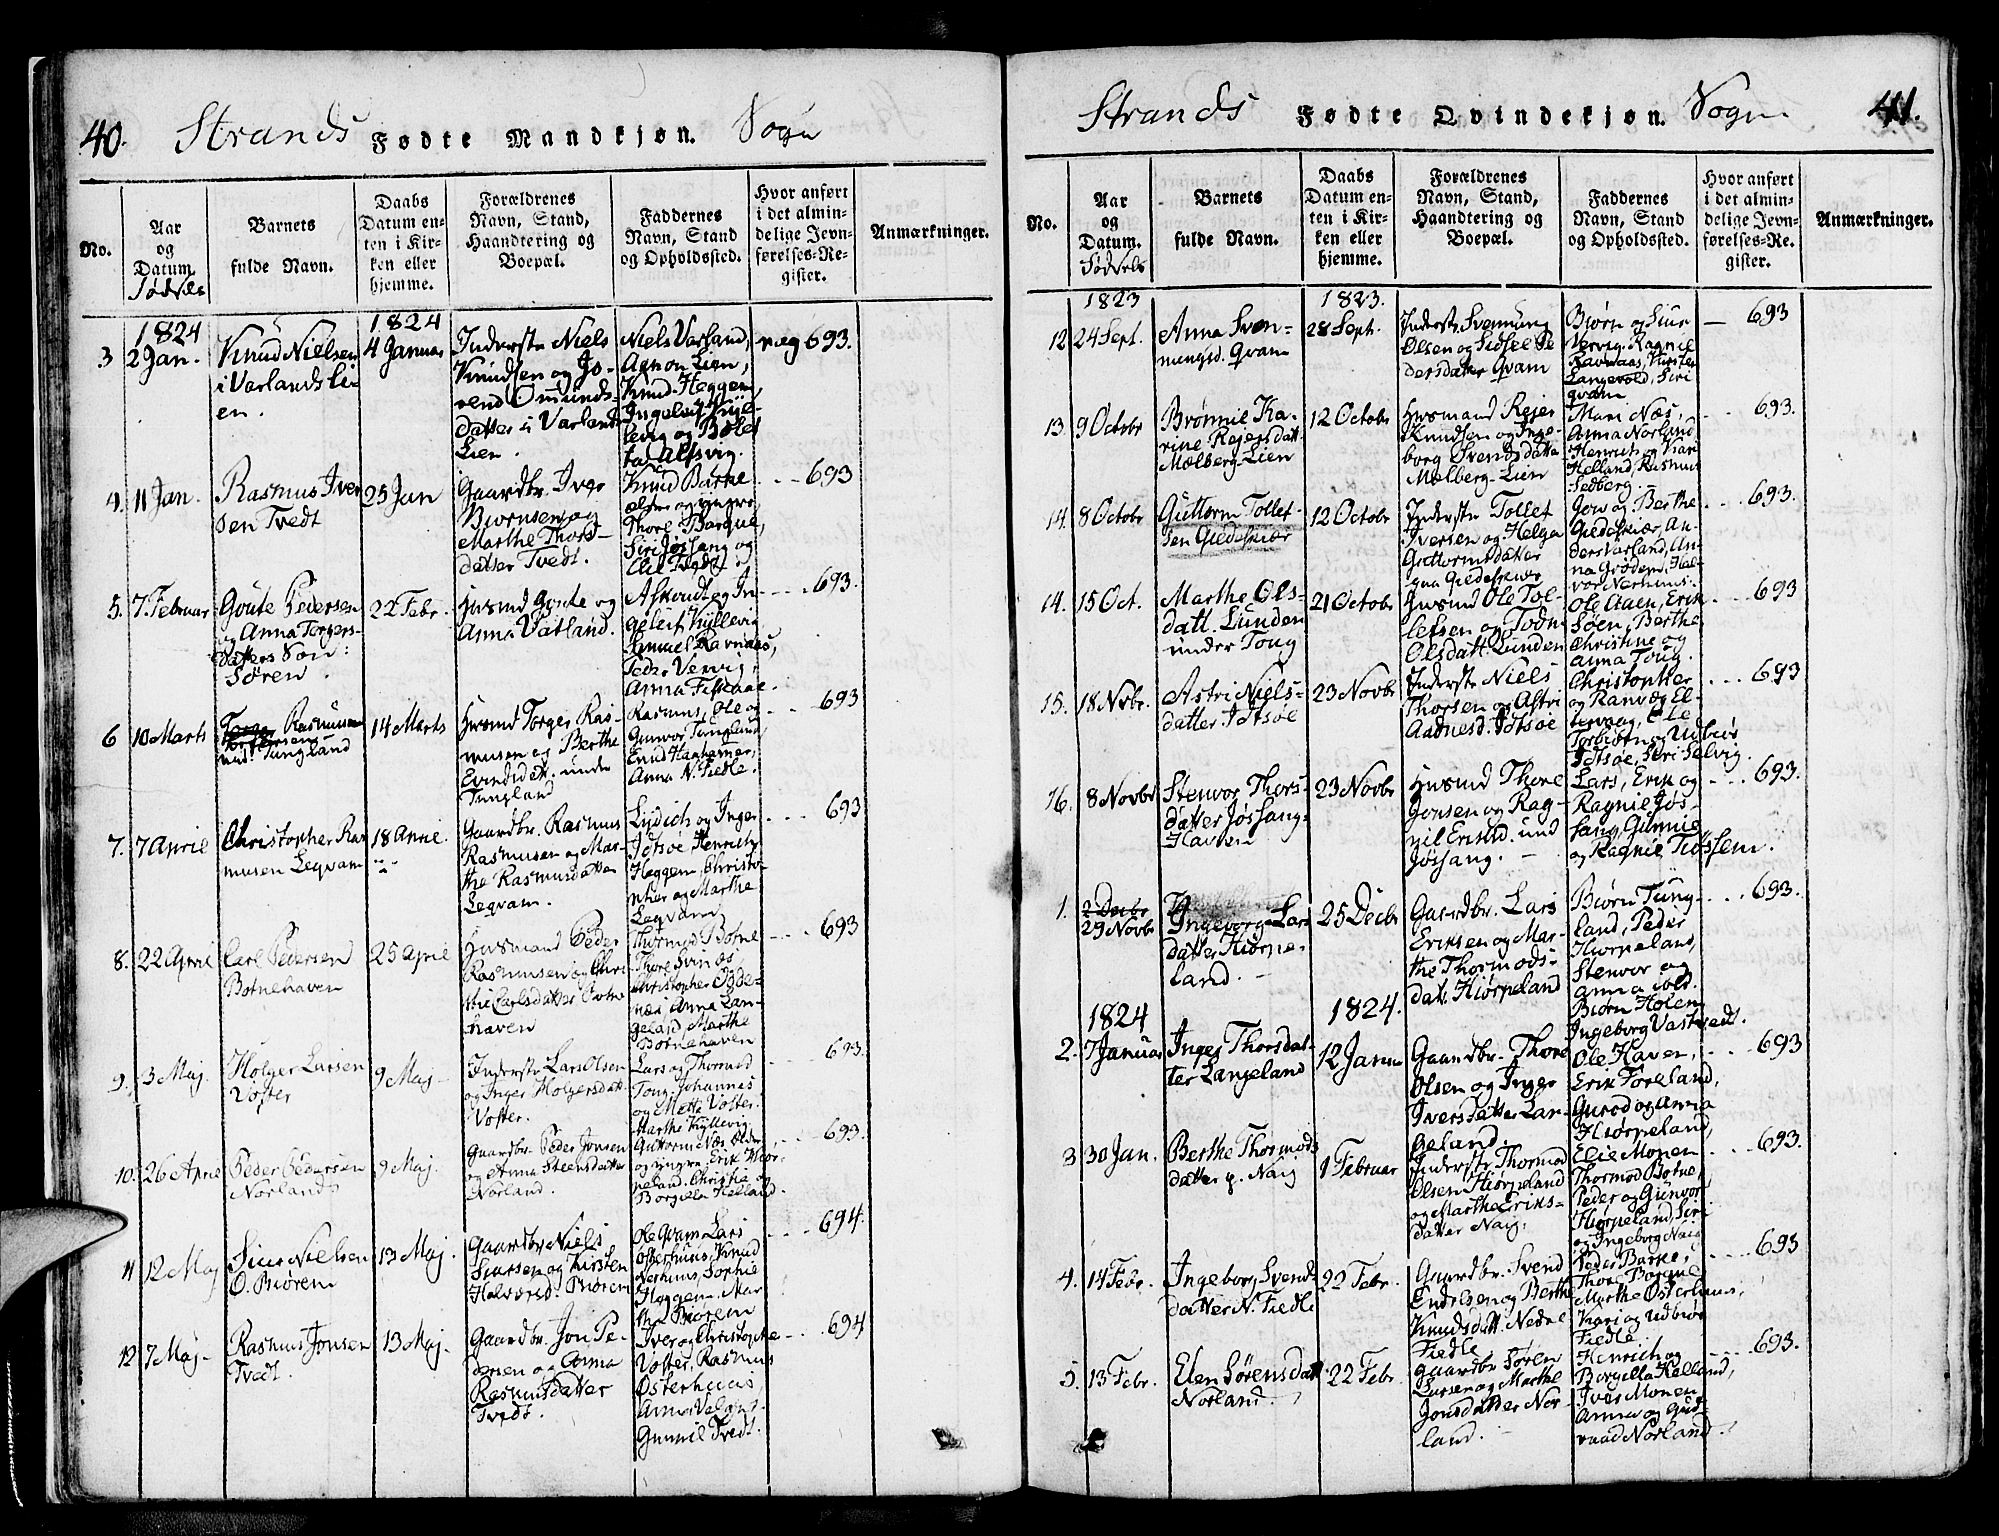 40. Strands Fødte Mandkjøn. Sogn
No.
Aar
og
Datum.
Fødsels
Barnets
fulde Navn.
Daabs
Datum en-
ten i Kir-
ken eller
hjemme.
Forældrenes
Navn, Stand,
Haandtering og
Boepæl.
Faddernes
Navn, Stand
og Opholdssted.
Hvor anført
i det almin-
delige Jevn-
førelses-Re-
gister.
Anmærkninger.
1824
1824
3
2 Jan.
Knud Nielsen
i Varlands Li-
en.
4 Januar
Inderste Niels
Knudsen og Jo-
rend Omunds-
datter i Varlands
Lien.
Niels Varland,
Aamon Lien,
Knud Heggem,
Ingeleif Kyl-
levig og Bolet-
ta Alsvig.
pag 693.
4.
11 Jan.
Rasmus Iver
sen Tvedt
25 Jan
Gaardbr. Iver
Bjornsen og
Marthe Thors-
datter Tvedt.
Knud Barke
ældre og yngre,
Thore Barque,
Siri Jøssang og
Elie Tvedt
693
5.
7. Februar
Goute Pedersen
og Anna Torgers-
datters Søn:
Søren.
22 Febr.
Husmd Goute og
Anna Vatland.
Askoudt og In
geleif Kyllevig
Samuel Ravnaas,
Peder Vervig,
Anna Fiskaae.
693.
6
10 Marts
Rasmus
Tungland
14 Marts
Husmd Torger Ras-
musen og Berthe
Evindsdatt. under
Tungland
Rasmus, Ole og
Gunvor Tungland,
Enud Haahammer,
Anna N. Fiedle.
693
7.
7 Aprie
Christopher Ras
musen Leqvam
18 Aprie.
Gaardbr. Rasmus
Rasmusen og Mar-
the Rasmusdatter
Leqvam.
Lydich og Inger
Idtsøe, Henrich
Heggem, Christo-
pher og Marthe
Leqvam
693
8.
22 Aprie
Carl Pedersen
Botnehaven
25 Aprie
Husmand Peder
Rasmusen og Chri
stie Carlsdatter Botne
haven
Thormod Botne
Thore Svines
Christopher Ogde-
næs, Anna Lan-
geland, Marthe
Botnehaven
693
9.
3 Maj.
Holger Larsen
Voster
9 Maj
Inderste Lars Olsen
og Inger Holgersdatt
Voster.
Lars og Thormod
Toug, Johannes
og Mette Voster.
Marthe Kyllevig
693.
10.
26 Aprie
Peder Pedersen
Norlands
9 Maj.
Gaardbr. Peder Jonsen
og Anna Steensdatter
Norland.
Guttorm Næs ælder,
og yngre, Erik Hior-
peland, Christie og
Borgilla Helland.
693.
11
12 Maj
Siur Nielsen
O. Biørem
13 Maj.
Gaardbr. Niels
Siursen og Kirsten
Halvorsd. Biørem
Ole Qvam, Lars
Osterhuus, Knud
Nerhuus, Sophie
Heggem, Mar
the Biørem
694.
12
7 Maj
Rasmus Jonsen
Tvedt.
13 Maj.
Gaardbr. Jon Pe-
dersen og Anna
Rasmusdatter
Tvedt.
Iver og Christophe
Voster, Rasmus
Østerhuus,
Anna Valand
Gunnil Tvedt.
694
Strands Fødte Qvindekjøn. Sogn 41.
No.
Aar
og
Datum.
Fødsels
Barnets
fulde Navn.
Daabs
Datum en-
ten i Kir-
ken eller
hjemme.
Forældrenes
Navn, Stand,
Haandtering og
Boepæl.
Faddernes
Navn, Stand
og Opholdssted.
Hvor anført
i det almin-
delige Jevn-
førelses-Re-
gister.
Anmærkninger.
1823
1823.
12
24 Sept.
Anna Sven-
nungsd. Qvam
28 Sept.
Inderste Svennung
Olsen og Sidsel Pe
dersdatter Qvam
Biørn og Siur
Vervig, Ragnil
Ravnaas, Kirsten
Langevold, Siri
Qvam
693
13.
9 Octobr
Brønnie Ka-
rine Rejersdatt.
Mølberg-Lien
12 Octobr
Husmand Rejer
Knudsen og Inge-
borg Svendsdatter
Mølberg-Lien
Mari Næs,
Anna Norland
Henrich og Kari
Helland, Rasmus
Sedberg.
693.
14.
8 Octobr
Guttorm Tollef-
sen Gildeskiær
12 Octobr
Inderste Tollef
Iversen og Helga
Guttormsdatter
paa Gildeskiær
Jon og Berthe
Gildeskiær, An-
ders Varland, An-
na Grødem, Hal-
vor Nerhuus.
693.
14.
15 Oct.
Marthe Ols-
datt. Lunden
under Toug
21 Octobr
Husmd Ole Tol-
lefsen og Todne
Olsdatt. Lunden
Ole Aaen, Erik
Søen, Berthe
Christine og
Anna Toug.
693
15.
18 Novbr.
Astri Niels-
datter Idtsøe
23 Novbr
Inderste Niels
Thorsen og Astri
Aadnesd. Idtsøe
Christopher
og Ranvog El-
tervaag, Ole
Torbiørn og Udbiør
Idtsøe, Siri Selvig.
693
16.
8 Novbr
Stenvor Thors-
datter Jøssang-
Haven
23 Novbr
Husmd Thore
Jonsen og Rag-
nil Eriksd. und
Jøssang.
Lars, Erik og
Ragnie Jøs-
sang, Gunnie
og Ragnie Tiøssem.
693.
1.
2 Decbr
29 Novbr
Ingeborg Lars
datter Hiørpe-
land.
25 Decbr
Gaardbr. Lars
Eriksen og Mar-
the Thormods-
datt. Hiørpeland
Biørn Tung-
land, Peder
Hiorpeland,
Stenvor og
Anna ibid.
Biørn Holen
Ingeborg Vastvedt.
693.
1824
1824.
2.
7 Januar
Inger Thorsdat-
ter Langeland
12 Janu
Gaardbr. Thore
Olsen og Inger
Iversdatter Lan-
geland.
Ole Haven,
Erik Foreland,
Guroe og Anna
Hiørpeland,
693
3
30 Jan.
Berthe Thormods
datter p. Naig
1 Februar
Inderste Thormod
Olsen Hiorpeland
og Marthe Eriks-
datter Naig.
Elie Monen
Thormod Botne,
Peder og Gunvor
Hiørpeland, Siri
og Ingeborg Naig
693.
4.
14 Febr.
Ingeborg Svends
datter N. Fiedle
22 Febr.
Gaardbr. Svend
Endresen og Berthe
Knudsdatt. Nedre
Fiedle
Peder Barke,
Thore Barque
Marthe Osterhuus,
Kari og Udbiør
Fiedle
693
5.
13 Febr.
Elen Sørensdatt.
Norland.
22 Febr.
Gaardbr. Søren
Larsen og Marthe
Jonsdatter Nor-
land.
Henrich og
Borgilla Helland,
Iver Monen
Anna og Gud-
vaad Norland.
693.